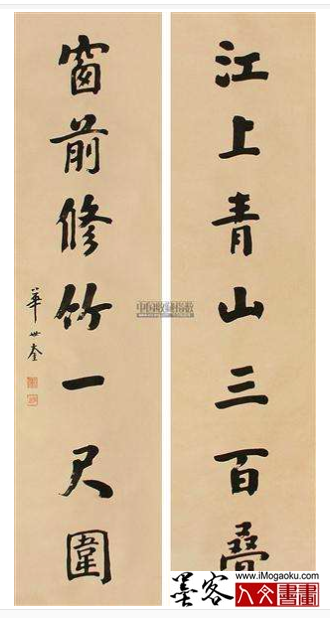 江上青山三百疊
窗前修竹一尺圍
華世奎
中国收藏拍卖
墨客
www.iMogaoku.com